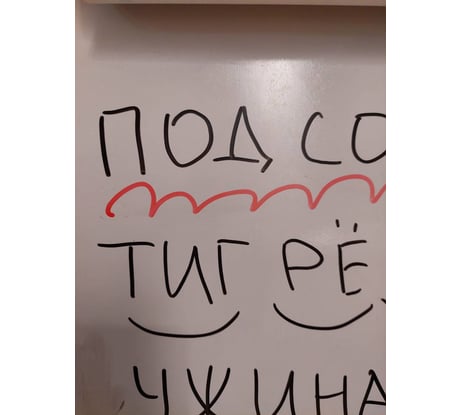 ПОД СО
ТИГ РЁ
ЧЖИНА